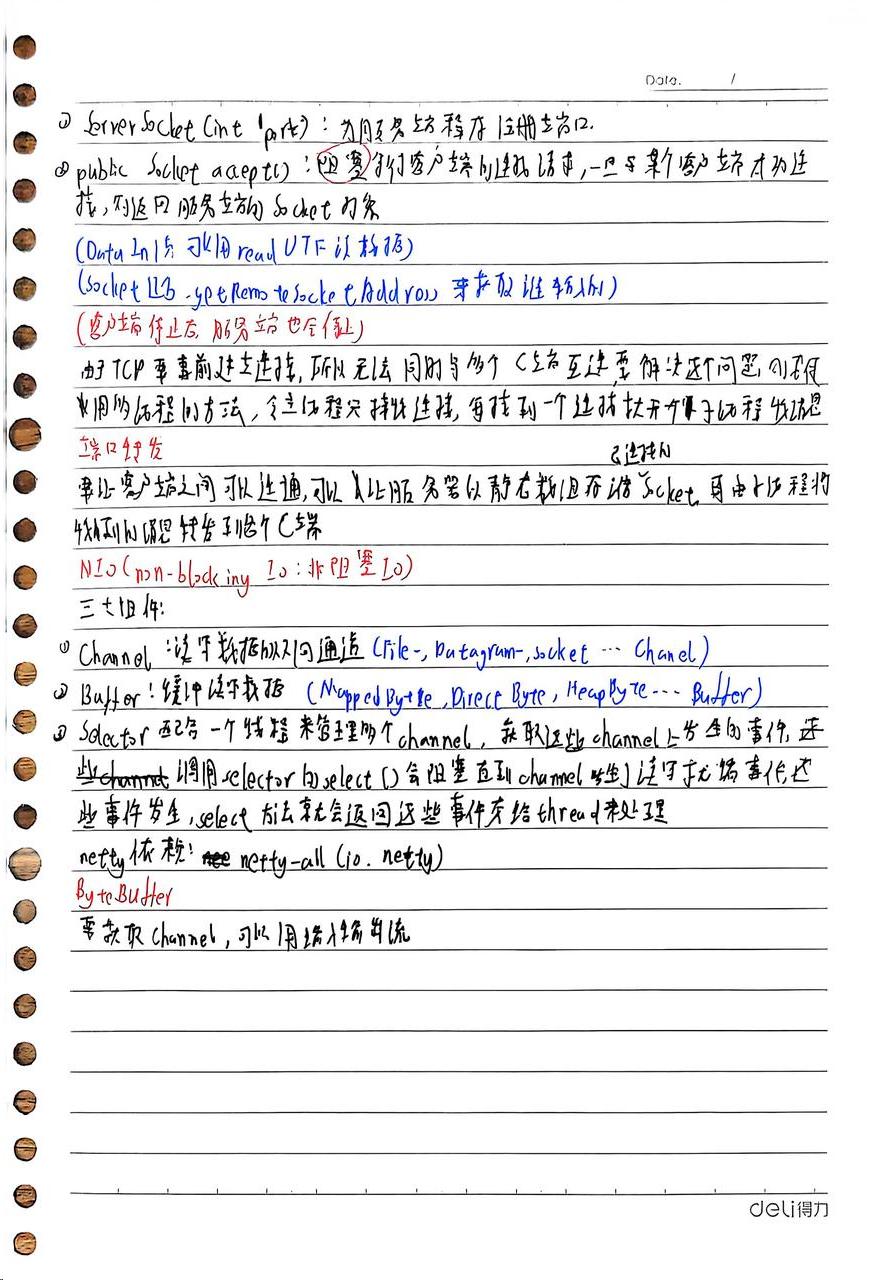 Date. /
① ServerSocket(int port)：为服务端程序注册端口.
② public Socket accept()：阻塞等待客户端的连接请求,一旦与某个客户端成功连
接,则返回服务端的Socket对象
(DataIn 可以用readUTF读数据)
(Socket .getRemoteSocketAddress 来获取谁输入的)
(客户端停止后,服务端也会停止)
由于TCP要事前建立连接,所以无法同时与多个C端互连,要解决这个问题则需使
用多线程的方法,令主线程只接收连接,每接到一个连接就开个子线程收消息
端口转发
已连接的
要让客户端之间可以连通,可以让服务器以静态数组存储Socket,再由子线程将
收到的消息转发到各个C端
NIO(non-blocking IO:非阻塞IO)
三大组件:
① Channel:读写数据的双向通道(File-, Datagram-, socket … Chanel)
② Buffer:缓冲读写数据 (MappedByte, DirectByte, HeapByte … Buffer)
③ Selector 配合一个线程来管理多个channel, 获取这些channel上发生的事件, 这
些channel 调用selector的select()会阻塞直到channel发生了读写就绪事件,这
些事件发生,select方法就会返回这些事件交给thread来处理
netty依赖: netty-all (io.netty)
ByteBuffer
要获取channel,可以用输入输出流
deli得力